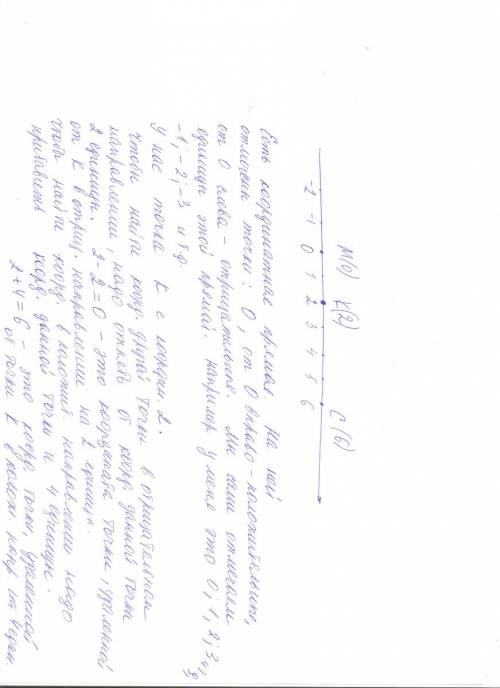 М(0) К(2) С(6)
-2 -1 0 1 2 3 4 5 6
Есть координатная прямая на ней
отмечены точки: 0, от 0 вправо - положительные,
от 0 слева - отрицательные. Мы сами отмечаем
единицы этой прямой. например у меня это 0; 1, 2; 3,
-1; -2; -3 и т.д.
У нас точка К с коорд. 2.
Чтобы найти коорд. другой точки в отрицательном
направлении, надо отнять от коорд. данной точки
2 единицы. 2-2=0 - это координата точки, удаленной
от К в отриц. направлении на 2 единицы.
Чтобы найти коорд. в положит. направлении надо
прибавить коорд. данной точки и 4 единицы.
2+4=6 - это коорд. точки, удаленной
от точки К в полож. напр. на 4 един.